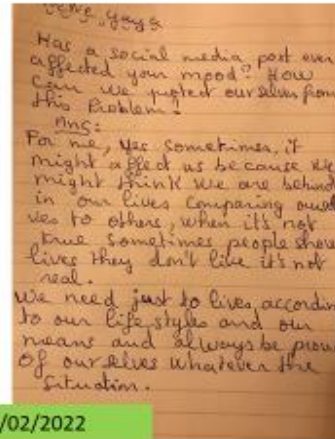 Has a social media post ever
affected your mood? How
can we protect ourselves from
this Problem?
Ans:
For me, yes sometimes, it
might affect us because we
might think we are behind
in our lives comparing oursl
ves to others, when it's not
true sometimes people show
lives they don't live it's not
real.
We need just to lives, accordin
to our life styles and our
means and always be prou
of ourselves whatever the
situation.
/02/2022